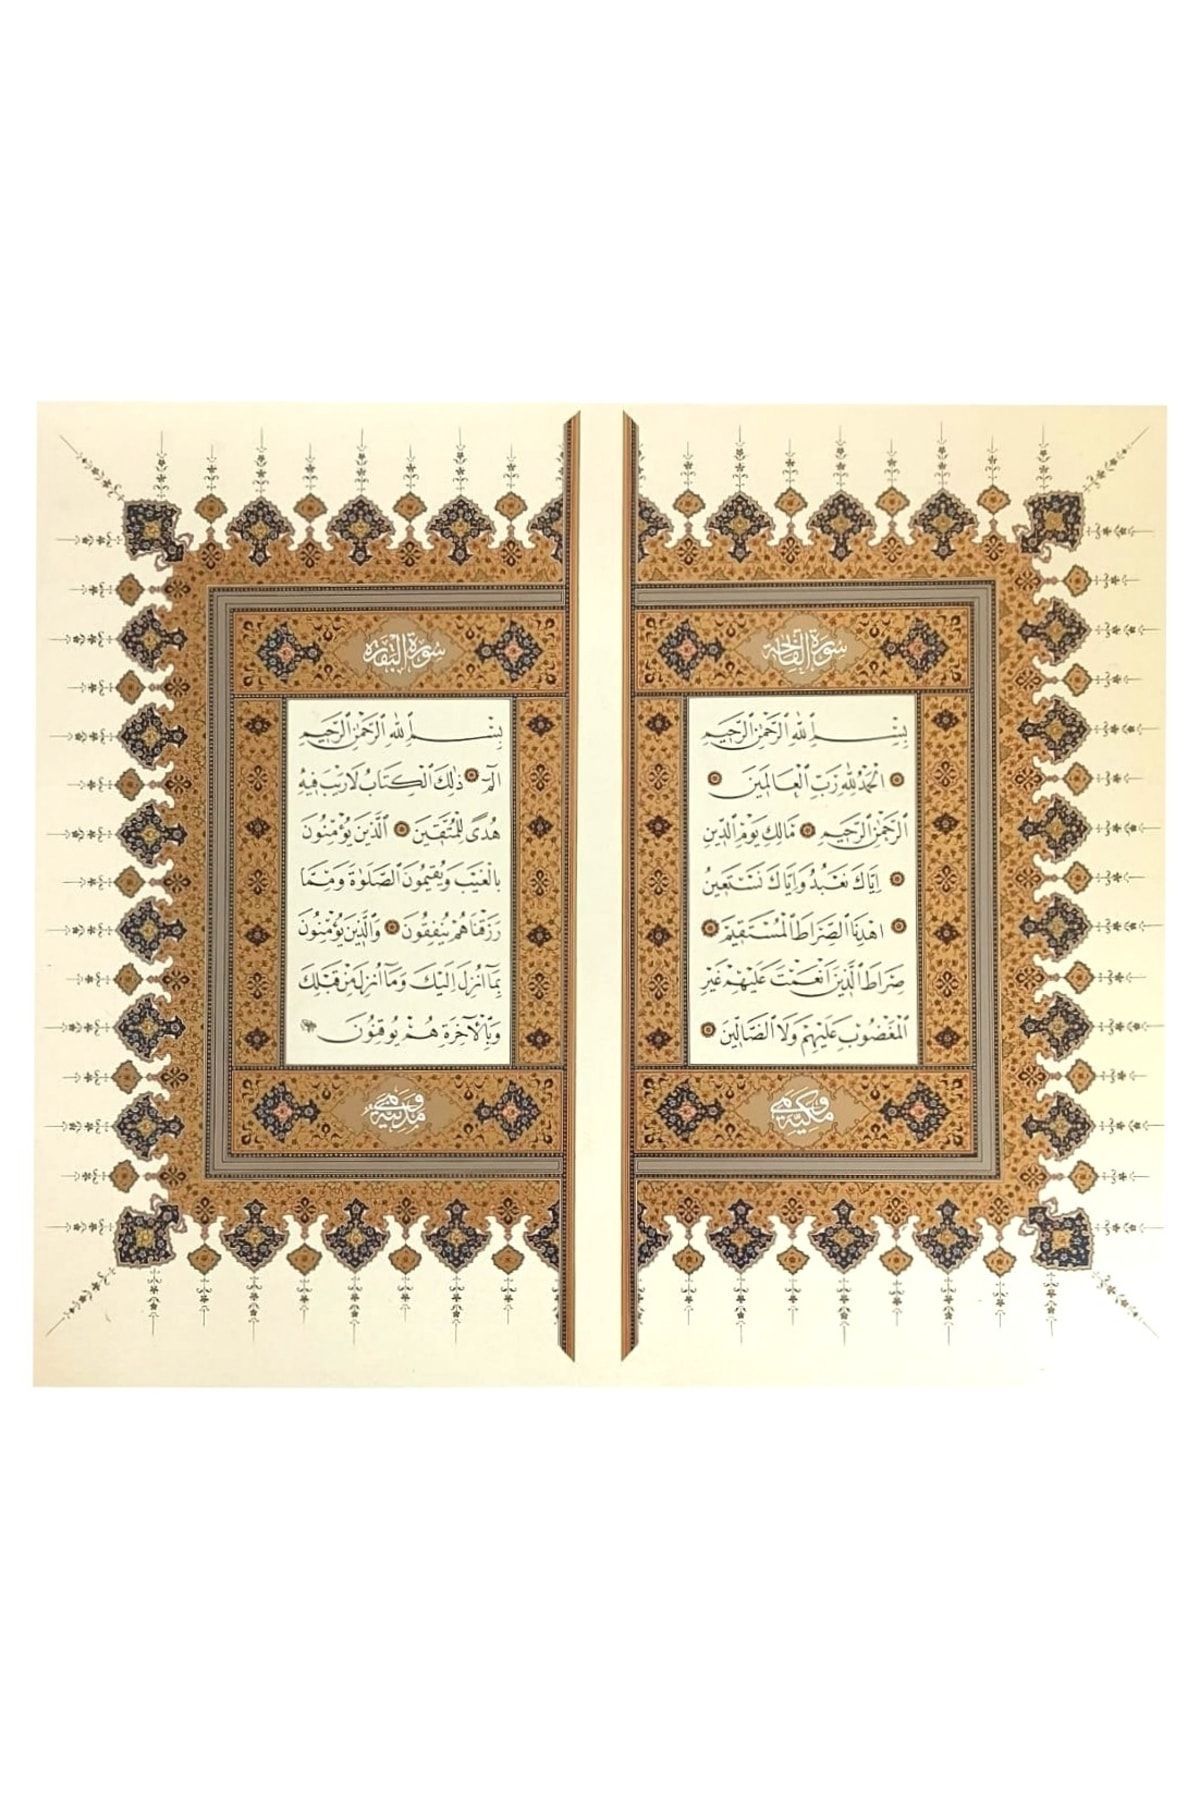 سورة الفاتحة
بسم الله الرحمن الرحيم
الحمد لله رب العالمين
الرحمن الرحيم مالك يوم الدين
اياك نعبد واياك نستعين
اهدنا الصراط المستقيم
صراط الذين انعمت عليهم غير
المغضوب عليهم ولا الضالين
وهي مكية
سورة البقرة
بسم الله الرحمن الرحيم
الم ذلك الكتاب لا ريب فيه
هدى للمتقين الذين يؤمنون
بالغيب ويقيمون الصلوة ومما
رزقناهم ينفقون والذين يؤمنون
بما انزل اليك وما انزل من قبلك
وبالآخرة هم يوقنون
وهي مدنية